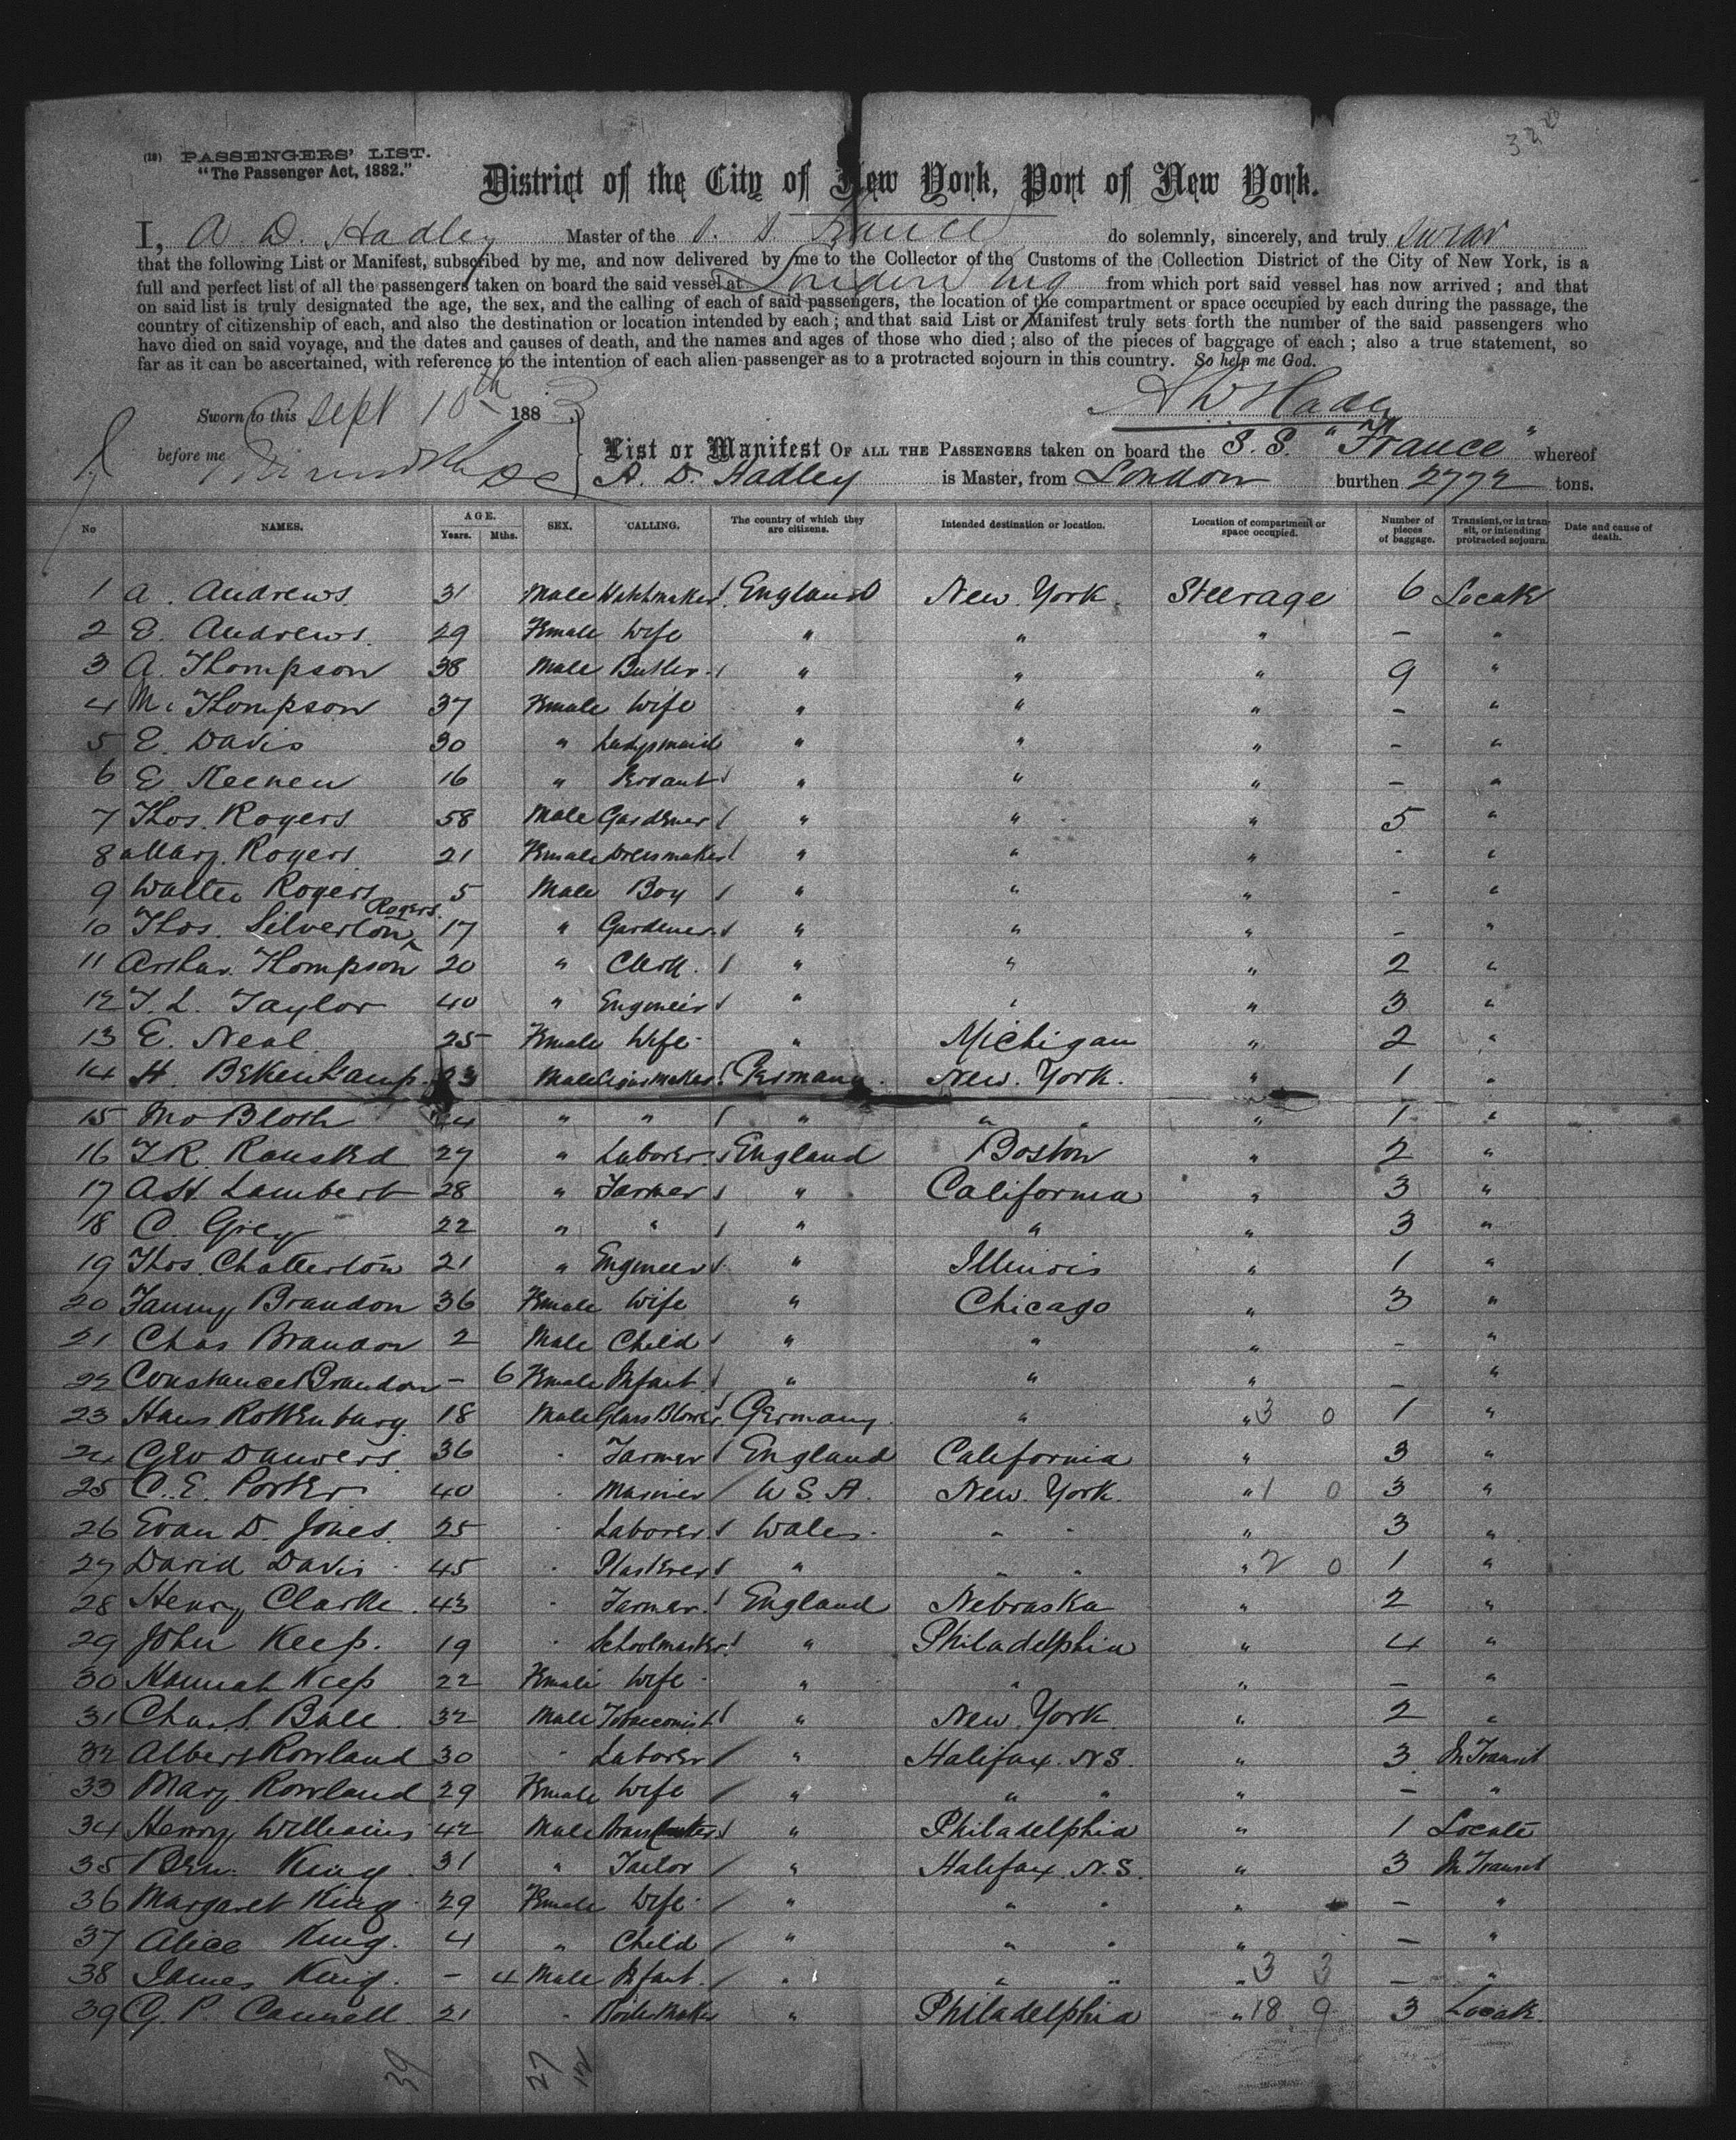 32 20
(18) PASSENGERS' LIST.
"The Passenger Act, 1882."
District of the City of New York, Port of New York.
I, A. D. Hadley Master of the S. S. France do solemnly, sincerely, and truly swear
that the following List or Manifest, subscribed by me, and now delivered by me to the Collector of the Customs of the Collection District of the City of New York, is a
full and perfect list of all the passengers taken on board the said vessel at London Eng from which port said vessel has now arrived; and that
on said list is truly designated the age, the sex, and the calling of each of said passengers, the location of the compartment or space occupied by each during the passage, the
country of citizenship of each, and also the destination or location intended by each; and that said List or Manifest truly sets forth the number of the said passengers who
have died on said voyage, and the dates and causes of death, and the names and ages of those who died; also of the pieces of baggage of each; also a true statement, so
far as it can be ascertained, with reference to the intention of each alien-passenger as to a protracted sojourn in this country. So help me God.
Sworn to this Sept 10th 1883 A D Hadley
before me
List or Manifest OF ALL THE PASSENGERS taken on board the S. S. "France" whereof
A. D. Hadley is Master, from London burthen 2772 tons.
No NAMES. AGE. Years. Mths. SEX. CALLING. The country of which they are citizens. Intended destination or location. Location of compartment or space occupied. Number of pieces of baggage. Transient, or in transit, or intending protracted sojourn. Date and cause of death.
1 A. Andrews 31 Male Watchmaker England New York Steerage 6 Locate
2 E. Andrews 29 Female Wife " " " - "
3 A. Thompson 38 Male Butler " " " 9 "
4 M. Thompson 37 Female Wife " " " - "
5 E. Davis 30 " Ladysmaid " " " - "
6 E. Keenen 16 " Servant " " " - "
7 Thos. Rogers 58 Male Gardener " " " 5 "
8 Mary Rogers 21 Female Dressmaker " " " - "
9 Walter Rogers 5 Male Boy " " " - "
10 Thos. Silverton Rogers 17 " Gardener " " " - "
11 Arthur Thompson 20 " Clerk " " " 2 "
12 T. L. Taylor 40 " Engineer " " " 3 "
13 E. Neal 25 Female Wife " Michigan " 2 "
14 H. Bekenkamp 23 Male Cigarmaker Germany New York " 1 "
15 Mo Bloth 24 " " " " " " 1 "
16 T R. Rausked 27 " Laborer England Boston " 2 "
17 A H Lambert 28 " Farmer " California " 3 "
18 C. Grey 22 " " " " " 3 "
19 Thos. Chatterton 21 " Engineer " Illinois " 1 "
20 Fanny Brandon 36 Female Wife " Chicago " 3 "
21 Chas Brandon 2 Male Child " " " - "
22 Constance Brandon - 6 Female Infant " " " - "
23 Hans Rottenburg 18 Male Glass Blower Germany " " 3 0 1 "
24 Geo Danvers 36 " Farmer England California " 3 "
25 C. E. Porter 40 " Mariner U S. A. New York " 1 0 3 "
26 Evan D. Jones 25 " Laborer Wales " " " 3 "
27 David Davis 45 " Plasterer " " " " 2 0 1 "
28 Henry Clarke 43 " Farmer England Nebraska " 2 "
29 John Keep 19 " Schoolmaster " Philadelphia " 4 "
30 Hannah Keep 22 Female Wife " " " - "
31 Chas. S. Ball 32 Male Tobacconist " New York " 2 "
32 Albert Rowland 30 " Laborer " Halifax. N.S. " 3 In Transit
33 Mary Rowland 29 Female Wife " " " " - "
34 Henry Williams 42 Male " Philadelphia " 1 Locate
35 Ben. King 31 " Tailor " Halifax N.S. " 3 In Transit
36 Margaret King 29 Female Wife " " " " - "
37 Alice King 4 " Child " " " " - "
38 James King - 4 Male Infant " " " " 3 3 - "
39 G. P. Cannell 21 " Boilermaker " Philadelphia " 18 9 3 Locate
39 27 12